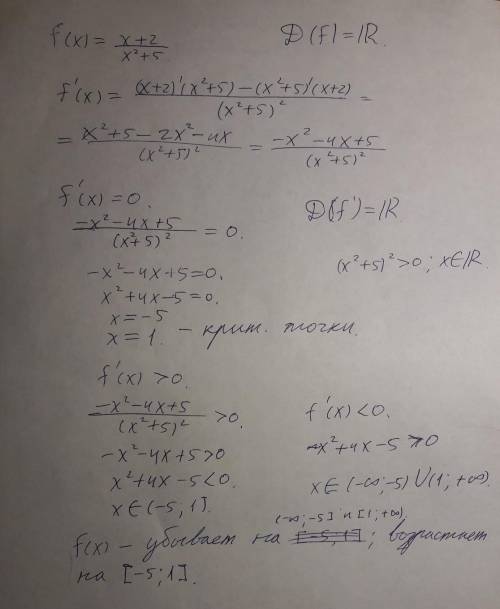 f(x) = x+2 / x²+5    D(f) = ℝ.
f'(x) = (x+2)'(x²+5) − (x²+5)'(x+2) / (x²+5)² =
= x²+5−2x²−4x / (x²+5)² = −x²−4x+5 / (x²+5)²
f'(x) = 0.    D(f') = ℝ
−x²−4x+5 / (x²+5)² = 0.    (x²+5)² > 0; x∈ℝ.
−x²−4x+5=0.
x²+4x−5=0.
x=−5
x=1. – крит. точки.
f'(x) > 0.
−x²−4x+5 / (x²+5)² > 0.    f'(x) < 0.
−x²−4x+5>0    x²+4x−5 > 0
x²+4x−5<0.    x∈(−∞;−5)∪(1;+∞).
x∈(−5,1].
(−∞;−5] и [1;+∞)
f(x) – убывает на [−5;1]; возрастает
на [−5;1].